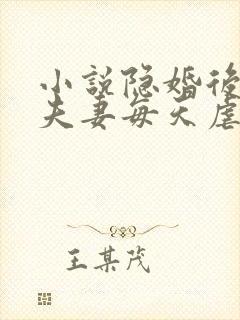 小说隐婚后
夫妻每天虐
王某茂